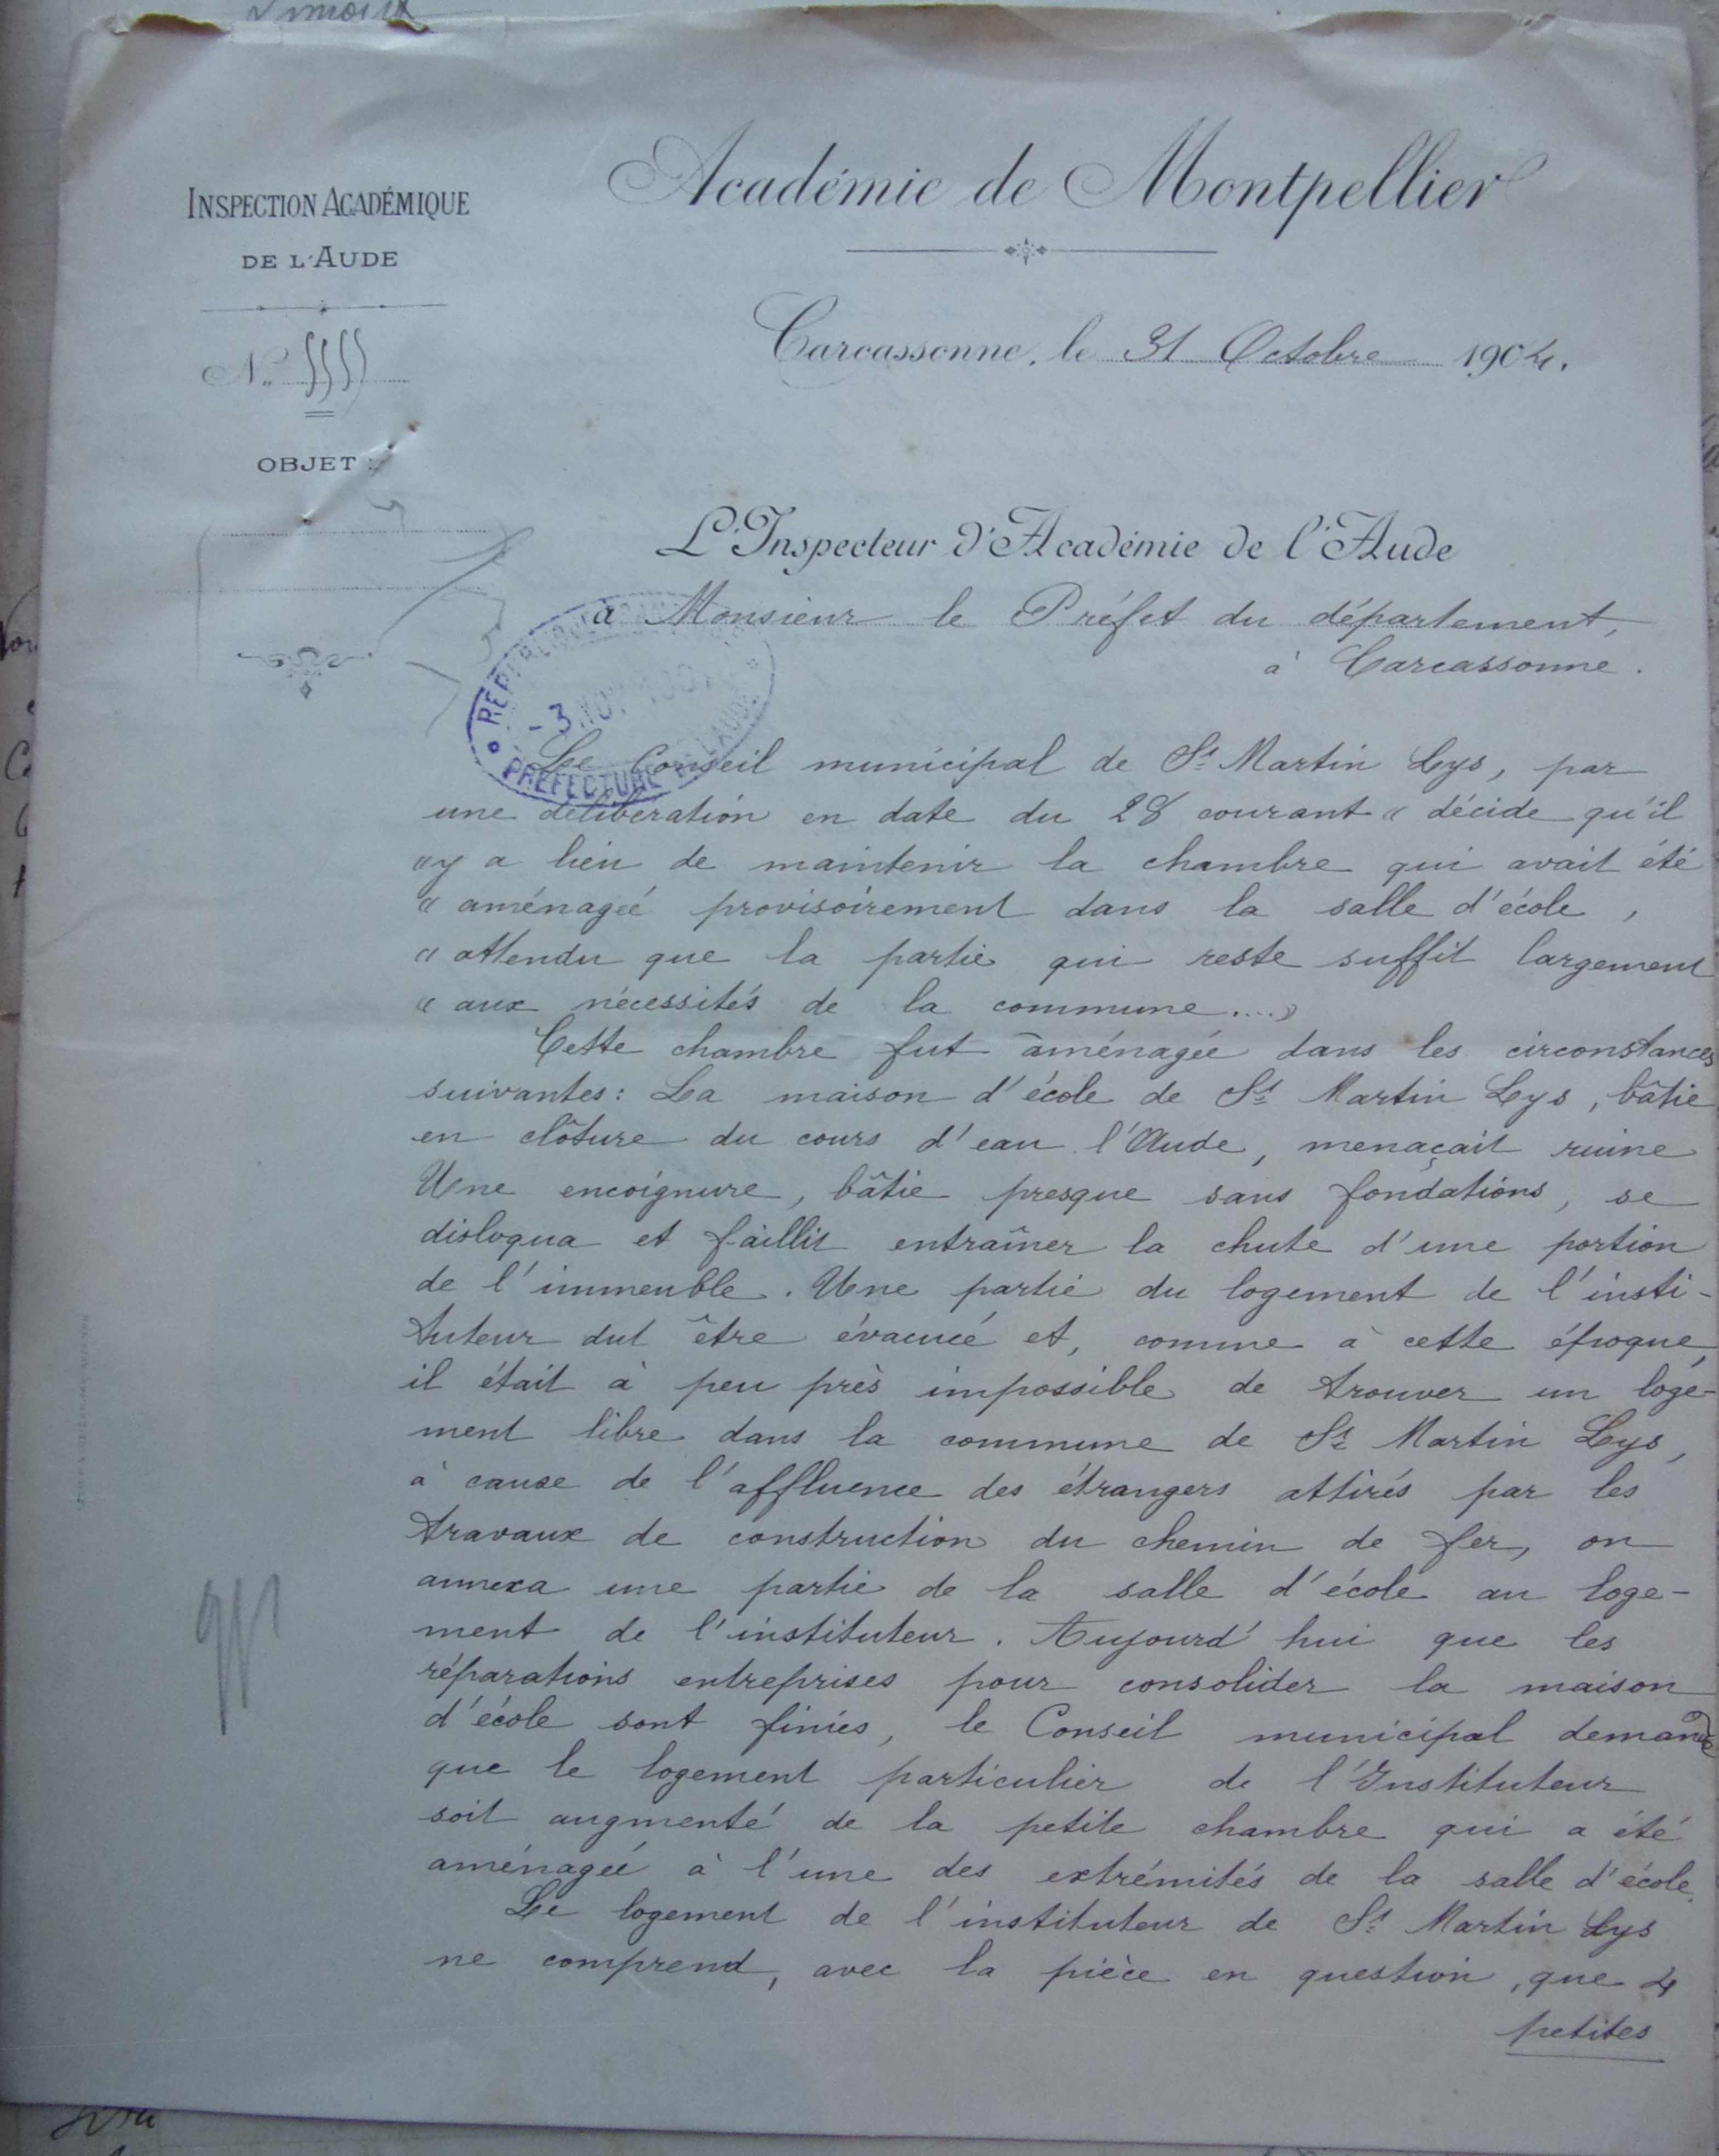 Académie de Montpellier
INSPECTION ACADÉMIQUE
DE L'AUDE
Carcassonne, le 31 Octobre 1904.
N° 5555
OBJET :
L'Inspecteur d'Académie de l'Aude
à Monsieur le Préfet du département,
à Carcassonne.
- 3 NOV
PRÉFECTURE DE L'AUDE
Le Conseil municipal de St Martin Lys, par
une délibération en date du 28 courant « décide qu'il
« y a lieu de maintenir la chambre qui avait été
« aménagée provisoirement dans la salle d'école,
« attendu que la partie qui reste suffit largement
« aux nécessités de la commune....»
Cette chambre fut aménagée dans les circonstances
suivantes: La maison d'école de St Martin Lys, bâtie
en clôture du cours d'eau l'Aude, menaçait ruine
Une encoignure, bâtie presque sans fondations, se
disloqua et faillit entraîner la chute d'une portion
de l'immeuble. Une partie du logement de l'insti-
tuteur dut être évacué et, comme à cette époque,
il était à peu près impossible de trouver un loge-
ment libre dans la commune de St Martin Lys,
à cause de l'affluence des étrangers attirés par les
travaux de construction du chemin de fer, on
annexa une partie de la salle d'école au loge-
ment de l'instituteur. Aujourd'hui que les
réparations entreprises pour consolider la maison
d'école sont finies, le Conseil municipal demande
que le logement particulier de l'Instituteur
soit augmenté de la petite chambre qui a été
aménagée à l'une des extrémités de la salle d'école.
Le logement de l'instituteur de St Martin Lys
ne comprend, avec la pièce en question, que 4
petites